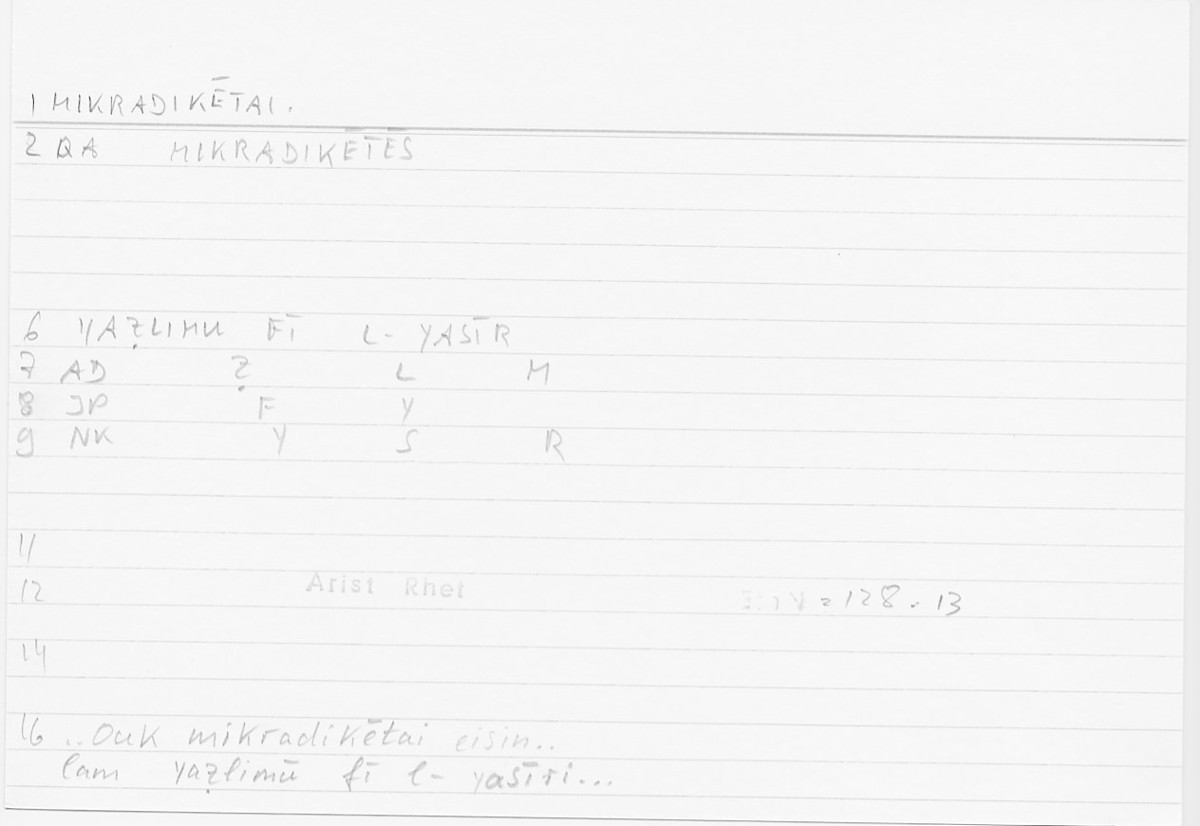 1 MIKRADIKĒTAI.
2 QA MIKRADIKĒTĒS
6 YAẒLIMU FĪ L- YASĪR
7 AD Ẓ L M
8 JP F Y
9 NK Y S R
11
12 Arist Rhet = 128.13
14
16 ..Ouk mikradikētai eisin..
lam yaẓlimū fī l- yasīri...